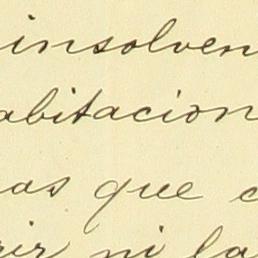 insolven
abitacion
as que c
rir ni la